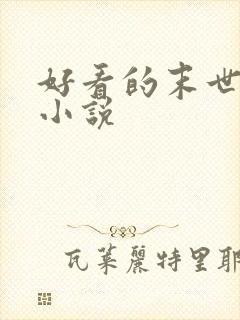 好看的末世
小说
瓦莱丽特里耶